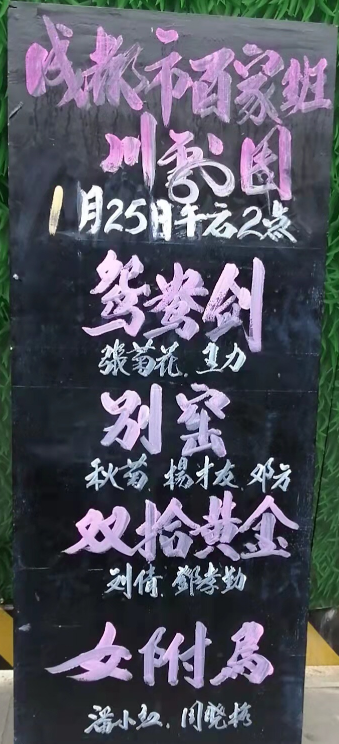 成都市百家班
川剧团
1月25日午后2点
鸳鸯剑
张菊花.王力
别窑
秋菊.楊才友.邓方
双拾黄金
刘倩.鄧孝勤
女附馬
潘小红.周晓梅